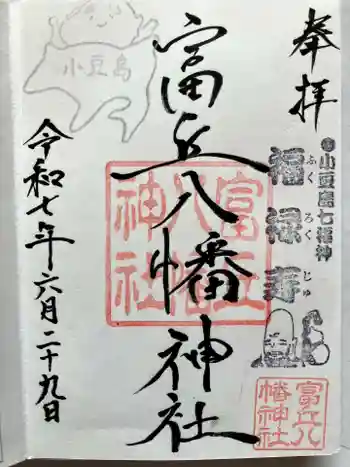 奉拝
●小豆島七福神
福禄寿
ふく ろく じゅ
富丘八幡神社
富丘八幡神社
富丘八幡神社
小豆島
令和七年六月二十九日